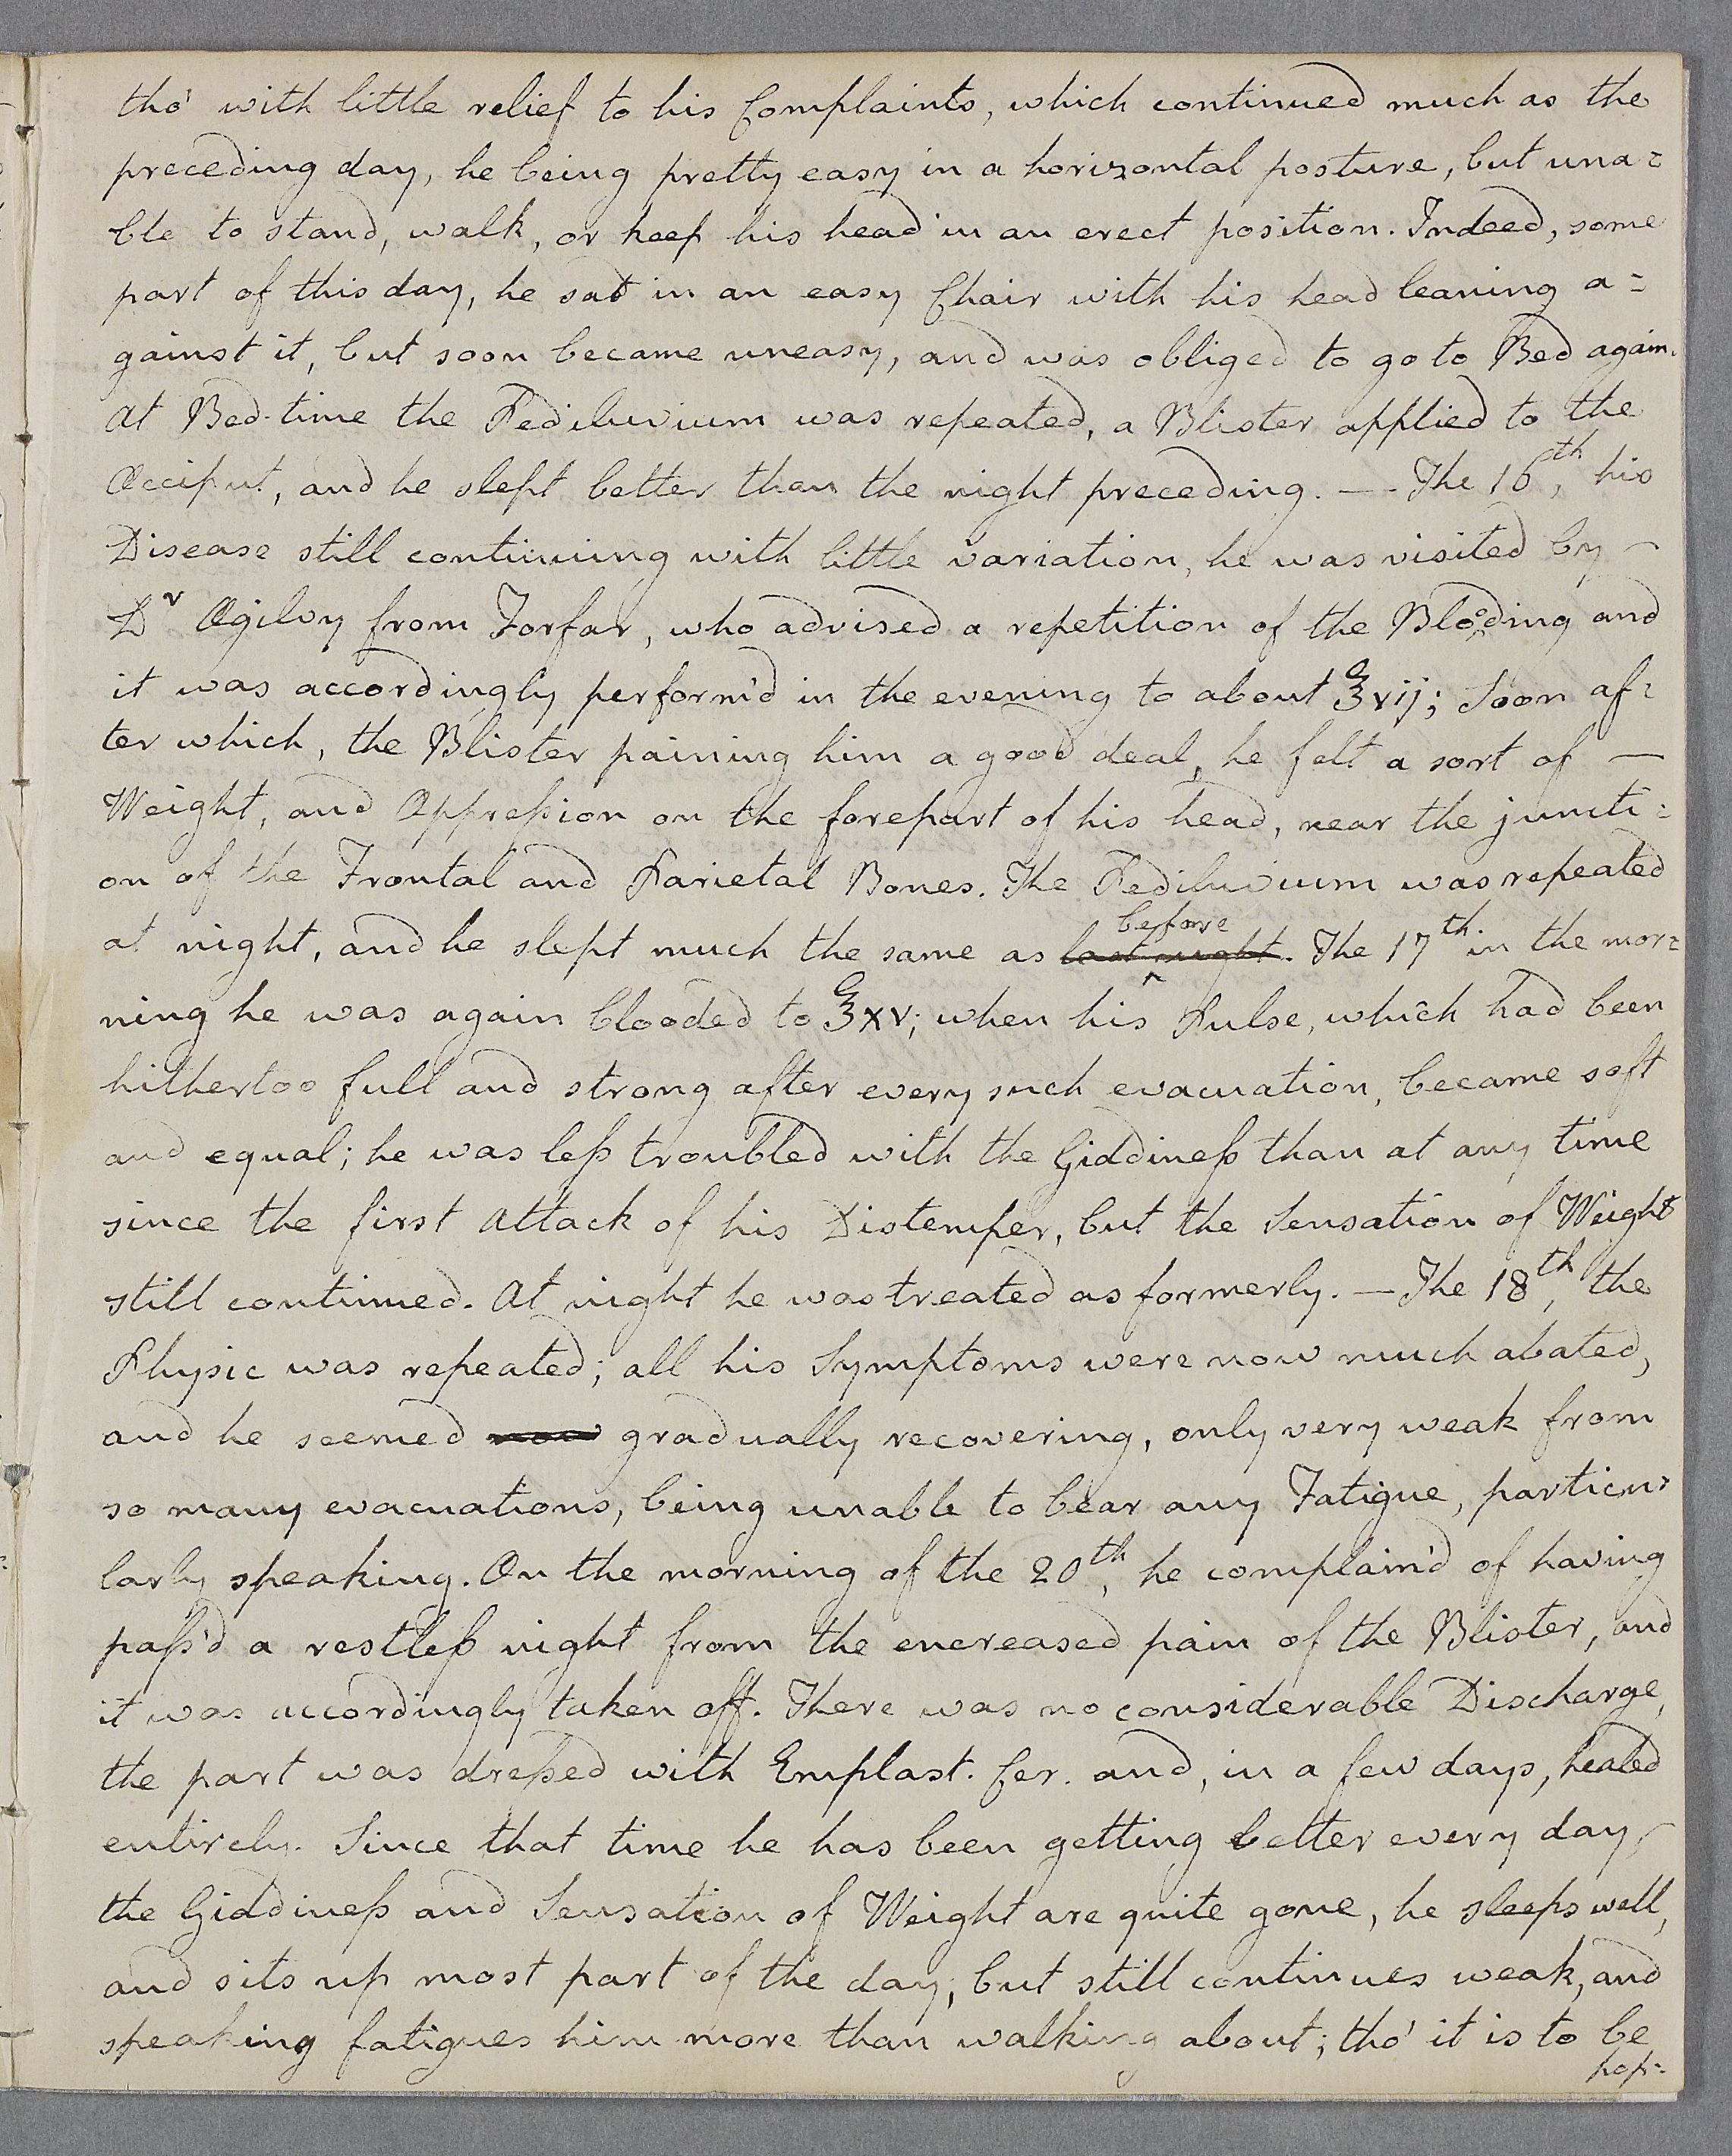 tho' with little relief to his Complaints, which continued much as the
preceding day, he being pretty easy in a horizontal posture, but una=
ble to stand, walk, or keep his head in an erect position. Indeed, some
part of this day, he sat in an easy Chair with his head leaning a=
gainst it, but soon became uneasy, and was obliged to go to Bed again.
At Bed-time the Pediluvium was repeated, a Blister applied to the
Occiput, and he slept better than the night preceding. — The 16th, his
Disease still continuing with little variation, he was visited by —
Dr Ogilvy from Forfar, who advised a repetition of the Blooding and
it was accordingly perform'd in the evening to about ℥vij; Soon af=
ter which, the Blister paining him a good deal, he felt a sort of —
Weight, and Oppreßion on the forepart of his head, near the juncti=
on of the Frontal and Parietal Bones. The Pediluvium was repeated
at night, and he slept much the same as last night before. The 17th in the mor=
ning he was again blooded to ℥xv; when his Pulse, which had been
hithertoo full and strong after every such evacuation, became soft
and equal; he was leß troubled with the Giddineß than at any time
since the first Attack of his Distemper, but the Sensation of Weight
still continued. At night he was treated as formerly. — The 18th, the
Physic was repeated; all his Symptoms were now much abated,
and he seemed now gradually recovering, only very weak from
so many evacuations, being unable to bear any Fatigue, particu=
larly speaking. On the morning of the 20th, he complain'd of having
paß'd a restleß night from the encreased pain of the Blister, and
it was accordingly taken off. There was no considerable Discharge,
the part was dreßed with Emplast. Cer. and, in a few days, healed
entirely. Since that time he has been getting better every day, —
the Giddineß and Sensation of Weight are quite gone, he sleeps well,
and sits up most part of the day; but still continues weak, and
speaking fatigues him more than walking about; tho' it is to be
hop=